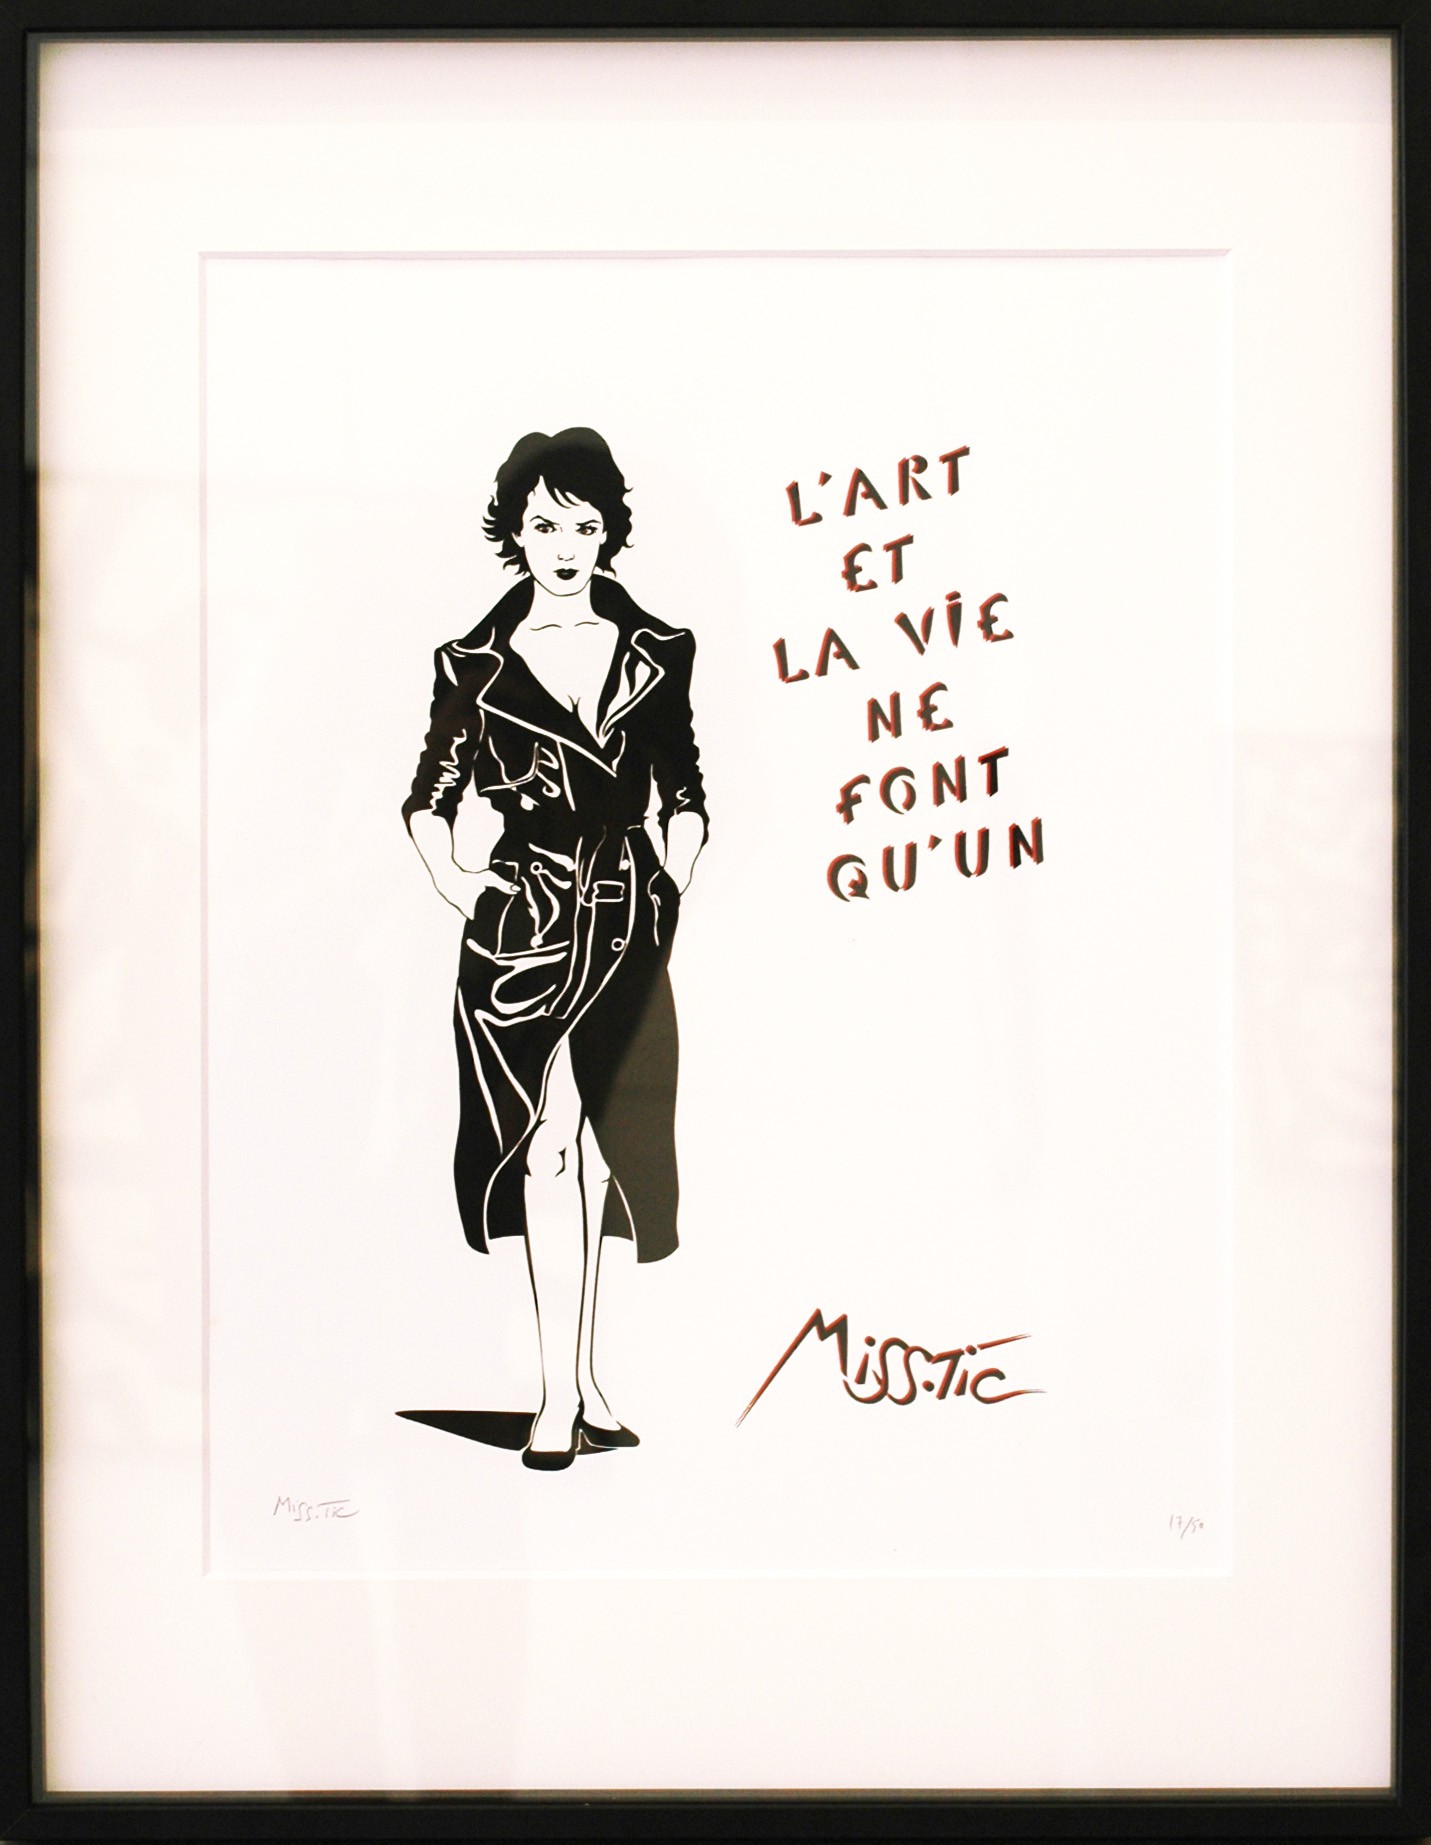 L'ART
ET
LA ViE
NE
FONT
QU'UN
MiSS.TiC
MiSS.TiC
17/50